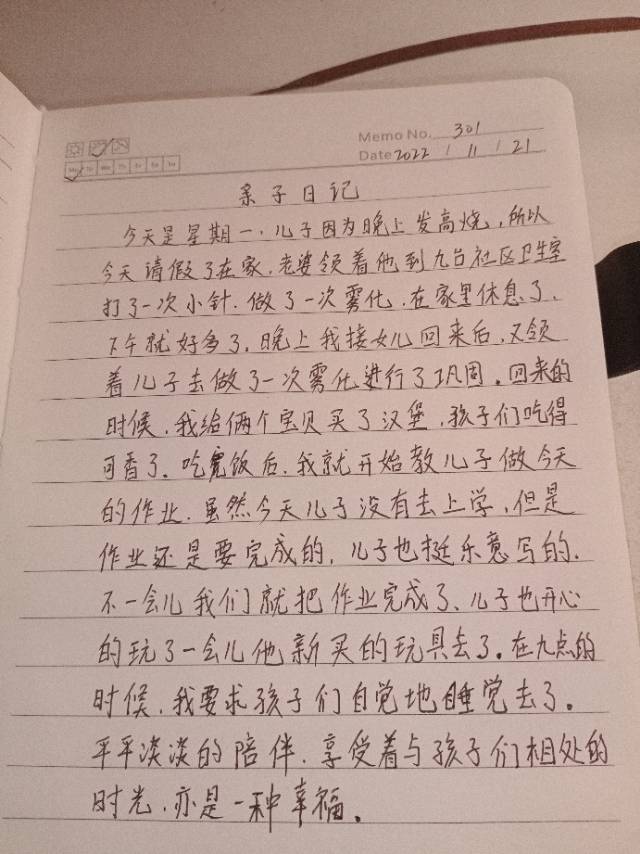 Memo No. 301
Mo Tu We Th Fr Sa Su
Date 2022 / 11 / 21
亲子日记
今天是星期一，儿子因为晚上发高烧，所以
今天请假了在家，老婆领着他到九台社区卫生室
打了一次小针，做了一次雾化，在家里休息了，
下午就好多了，晚上我接女儿回来后，又领
着儿子去做了一次雾化进行了巩固。回来的
时候，我给俩个宝贝买了汉堡，孩子们吃得
可香了。吃完饭后，我就开始教儿子做今天
的作业，虽然今天儿子没有去上学，但是
作业还是要完成的，儿子也挺乐意写的，
不一会儿我们就把作业完成了、儿子也开心
的玩了一会儿他新买的玩具去了。在九点的
时候，我要求孩子们自觉地睡觉去了。
平平淡淡的陪伴，享受着与孩子们相处的
时光，亦是一种幸福。